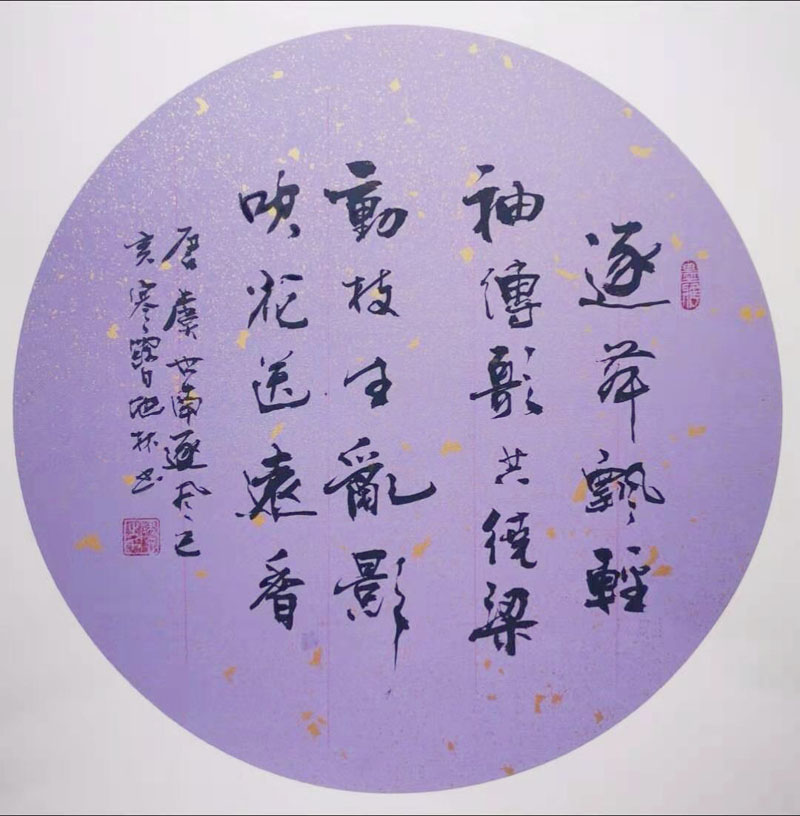 逐舞飄輕
袖傳歌共繞梁
動枝生亂影
吹花送遠香
唐虞世南逐風己
亥寒露日旭林書